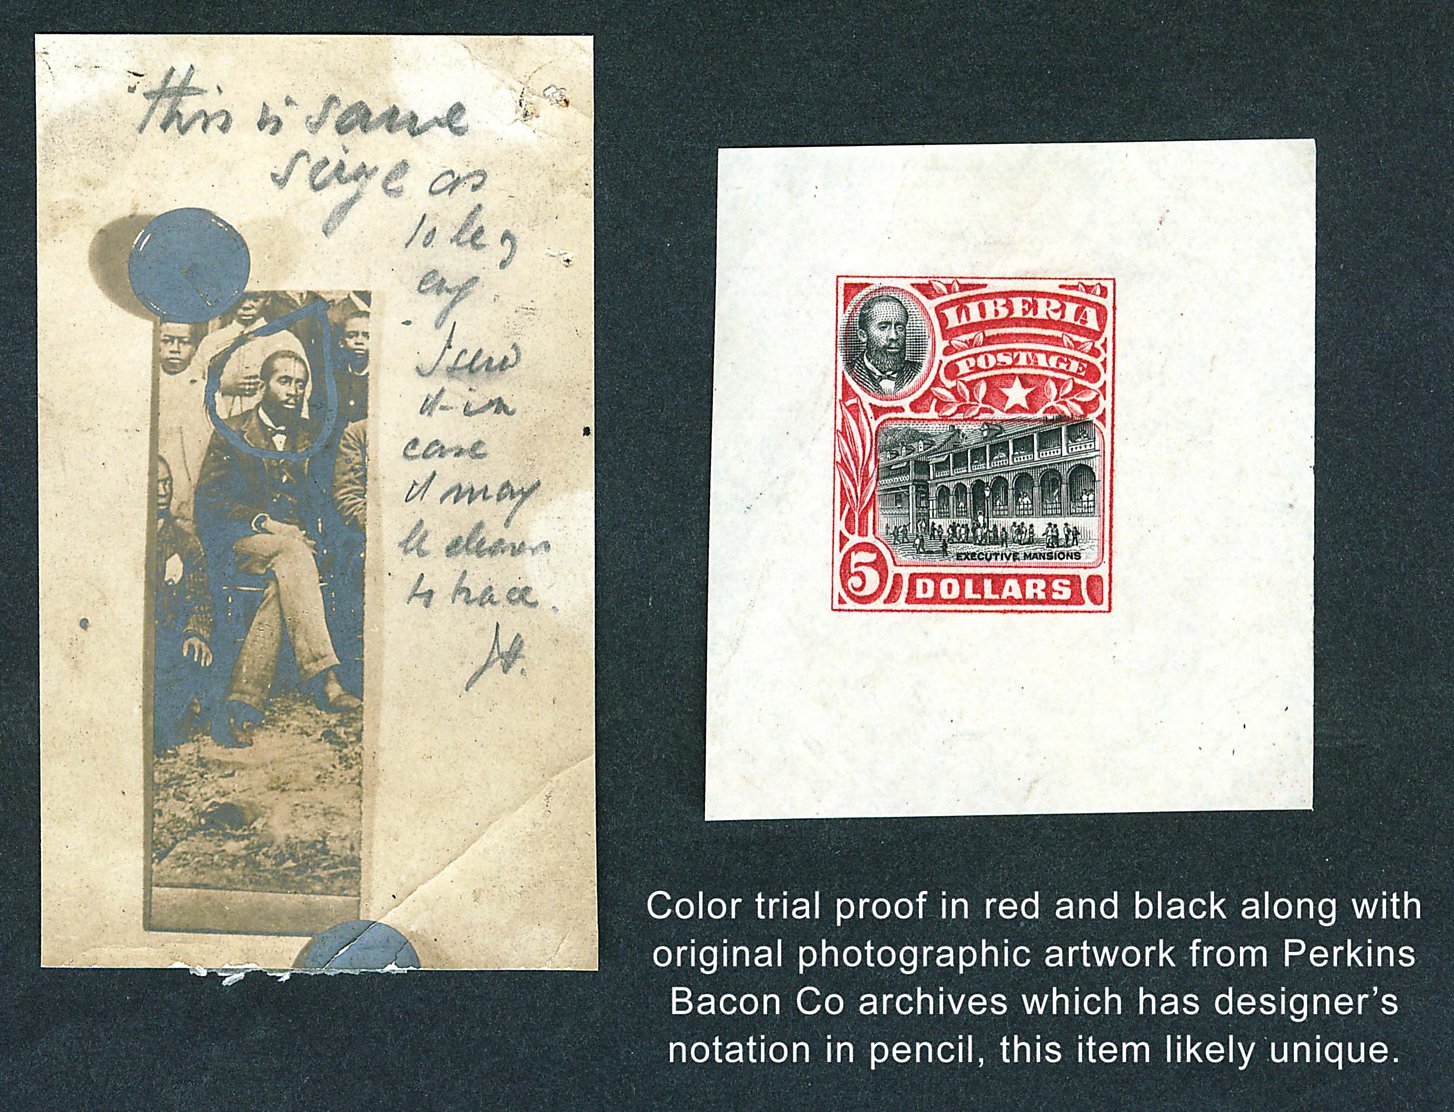 this is same
size as
to be
eng.
I send
it in
case
it may
be clearer
to trace.
JH.
LIBERIA
POSTAGE
EXECUTIVE MANSIONS
5
DOLLARS
Color trial proof in red and black along with
original photographic artwork from Perkins
Bacon Co archives which has designer's
notation in pencil, this item likely unique.